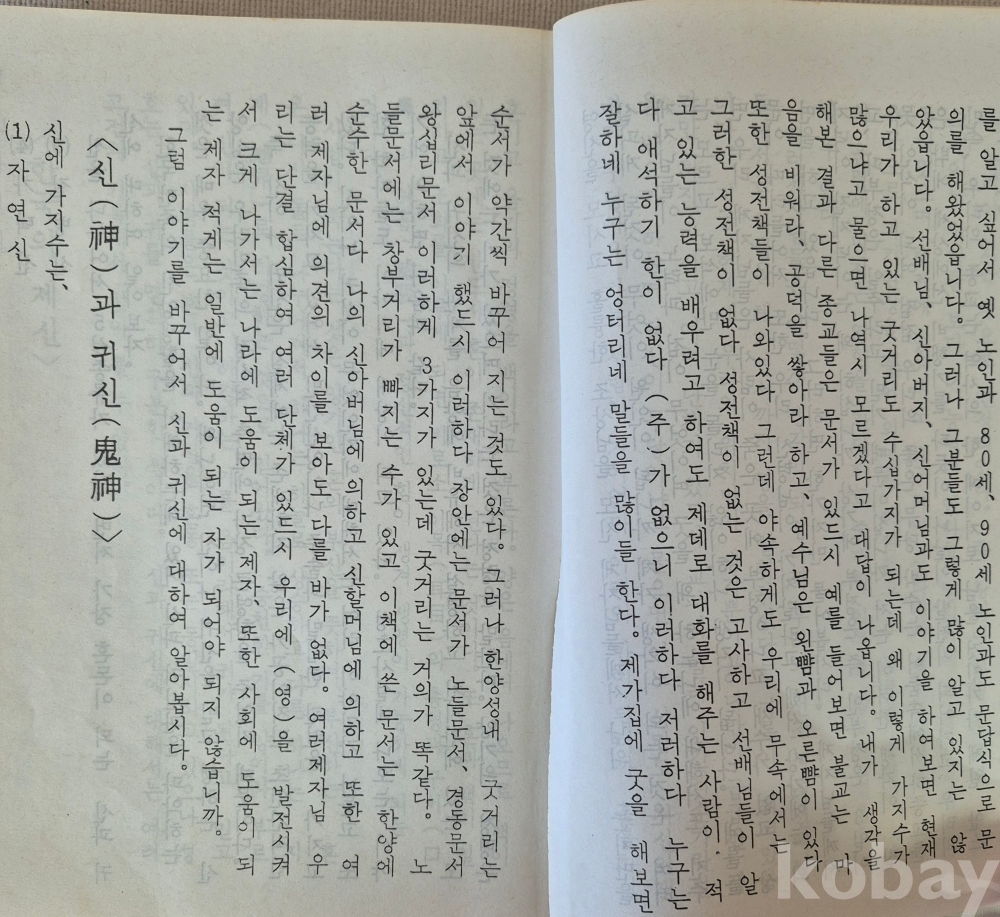 를 알고 싶어서 옛 노인과 80세、90세 노인과도 문답식으로 문
의를 해왔었읍니다。그러나 그분들도 그렇게 많이 알고 있지는 않
았읍니다。선배님、신아버지、신어머님과도 이야기을 하여보면 현재
우리가 하고 있는 굿거리도 수십가지가 되는데 왜 이렇게 가지수가
많으냐고 물으면 나역시 모르겠다고 대답이 나옵니다。내가 생각을
해본 결과 다른 종교들은 문서가 있드시 예를 들어보면 불교는 마
음을 비워라、공덕을 쌓아라 하고、예수님은 왼뺨과 오른뺨이 있다
또한 성전책들이 나와있다 그런데 야속하게도 우리에 무속에서는
그러한 성전책이 없다 성전책이 없는 것은 고사하고 선배님들이 알
고 있는 능력을 배우려고 하여도 제데로 대화를 해주는 사람이 적
다 애석하기 한이 없다 (주)가 없으니 이러하다 저러하다 누구는
잘하네 누구는 엉터리네 말들을 많이들 한다。제가집에 굿을 해보면
순서가 약간씩 바꾸어 지는 것도 있다。그러나 한양성내 굿거리는
앞에서 이야기 했드시 이러하다 장안에는 문서가 노들문서、경동문서
왕십리문서 이러하게 3가지가 있는데 굿거리는 거의가 똑같다。노
들문서에는 창부거리가 빠지는 수가 있고 이책에 쓴 문서는 한양에
순수한 문서다 나의 신아버님에 의하고 신할머님에 의하고 또한 여
러 제자님에 의견의 차이를 보아도 다를 바가 없다。여러제자님 우
리는 단결 합심하여 여러 단체가 있드시 우리에 (영)을 발전시켜
서 크게 나가서는 나라에 도움이 되는 제자、또한 사회에 도움이 되
는 제자 적게는 일반에 도움이 되는 자가 되어야 되지 않습니까。
그럼 이야기를 바꾸어서 신과 귀신에 대하여 알아봅시다。
〈신(神)과 귀신(鬼神)〉
신에 가지수는、
(1) 자연신
kobay